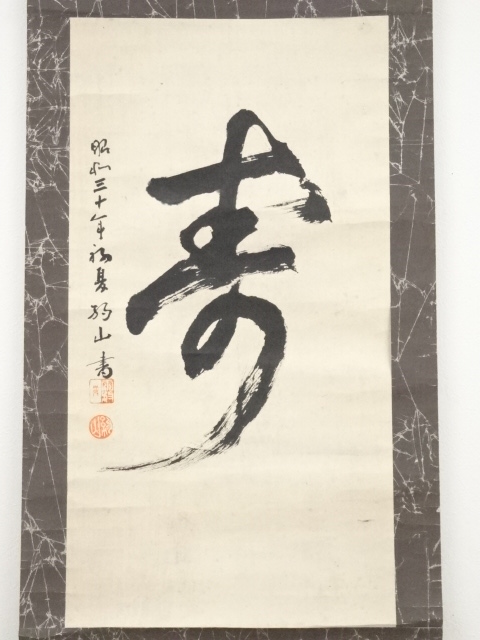 寿
昭和三十年初夏 山書